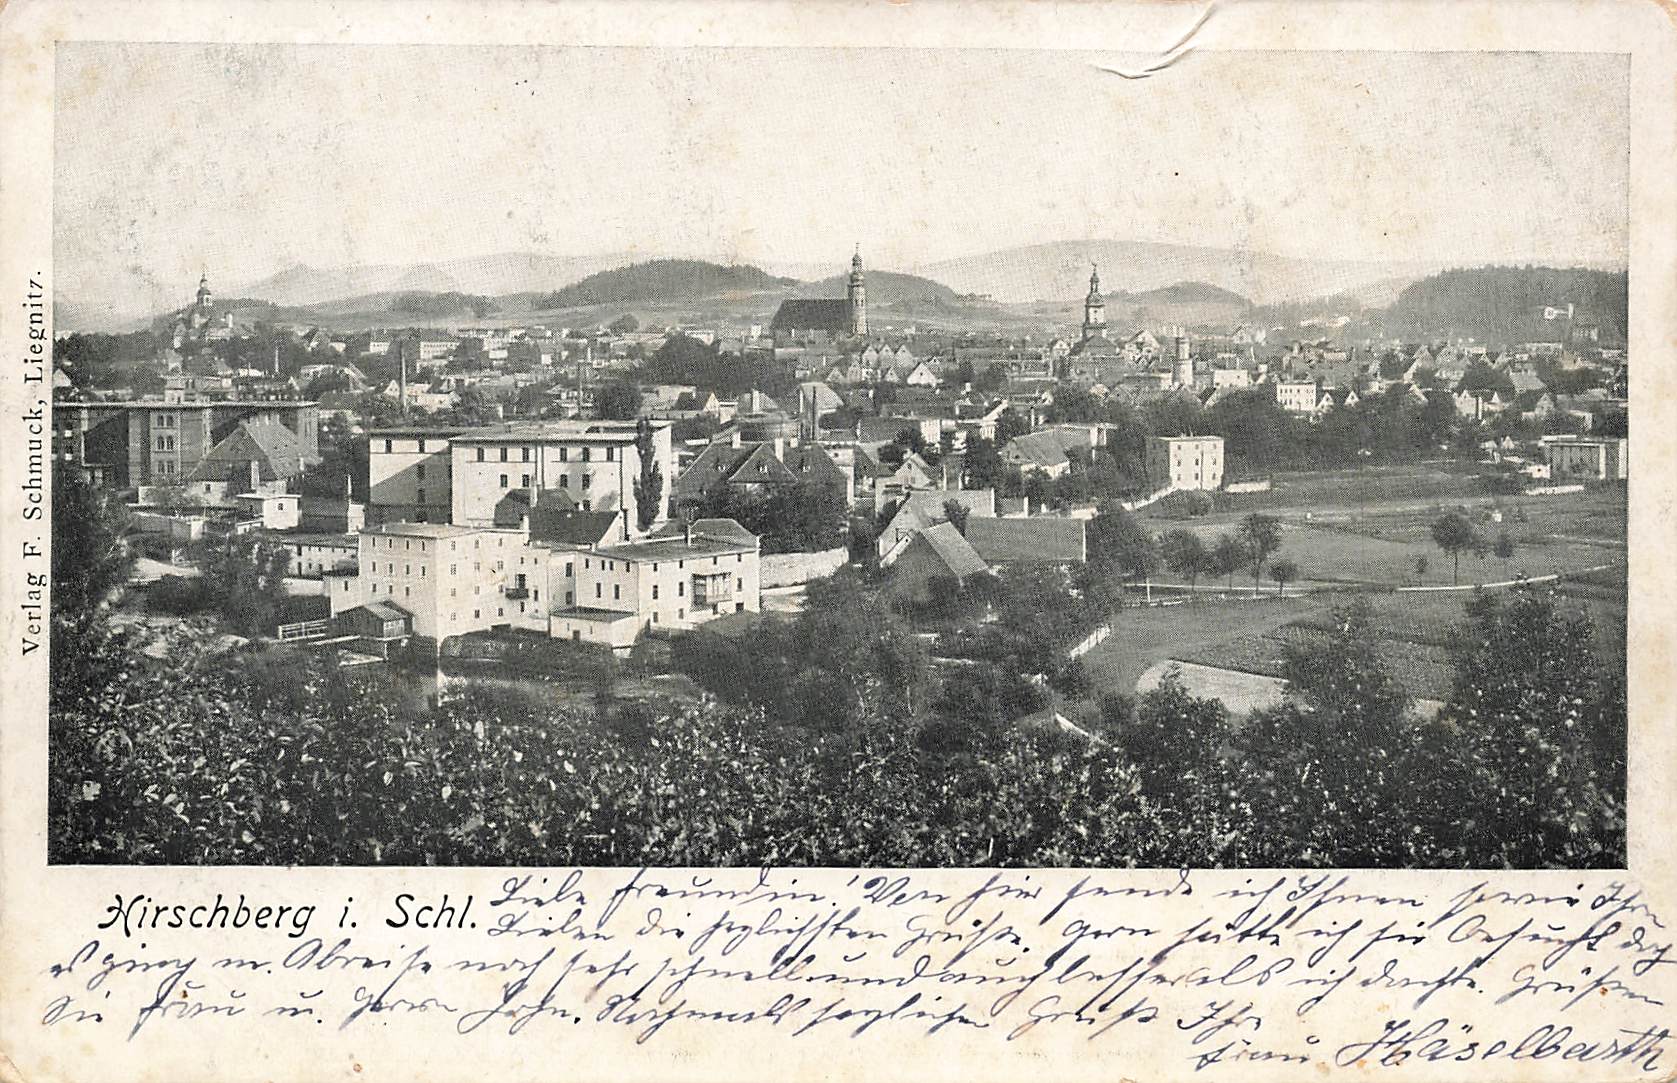 Verlag F. Schmuck, Liegnitz.
Hirschberg i. Schl.
Liebe Freundin! Von hier sende ich Ihnen sowie Ihren
Lieben die herzlichsten Grüße. Gern hätte ich sie besucht doch
es ging m. Abreise noch sehr schnell und auch besser als ich dachte. Grüßen
Sie Frau u. Herrn John. Nochmals herzlichen Gruß Ihre
Frau Häselbarth